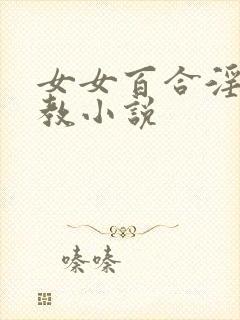 女女百合淫
教小说
嗪嗪